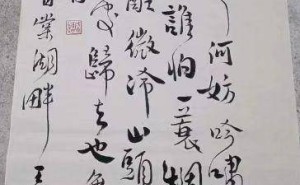 何妨吟嘯
誰怕一蓑烟
醒微冷山頭
處歸去也
業湖畔王